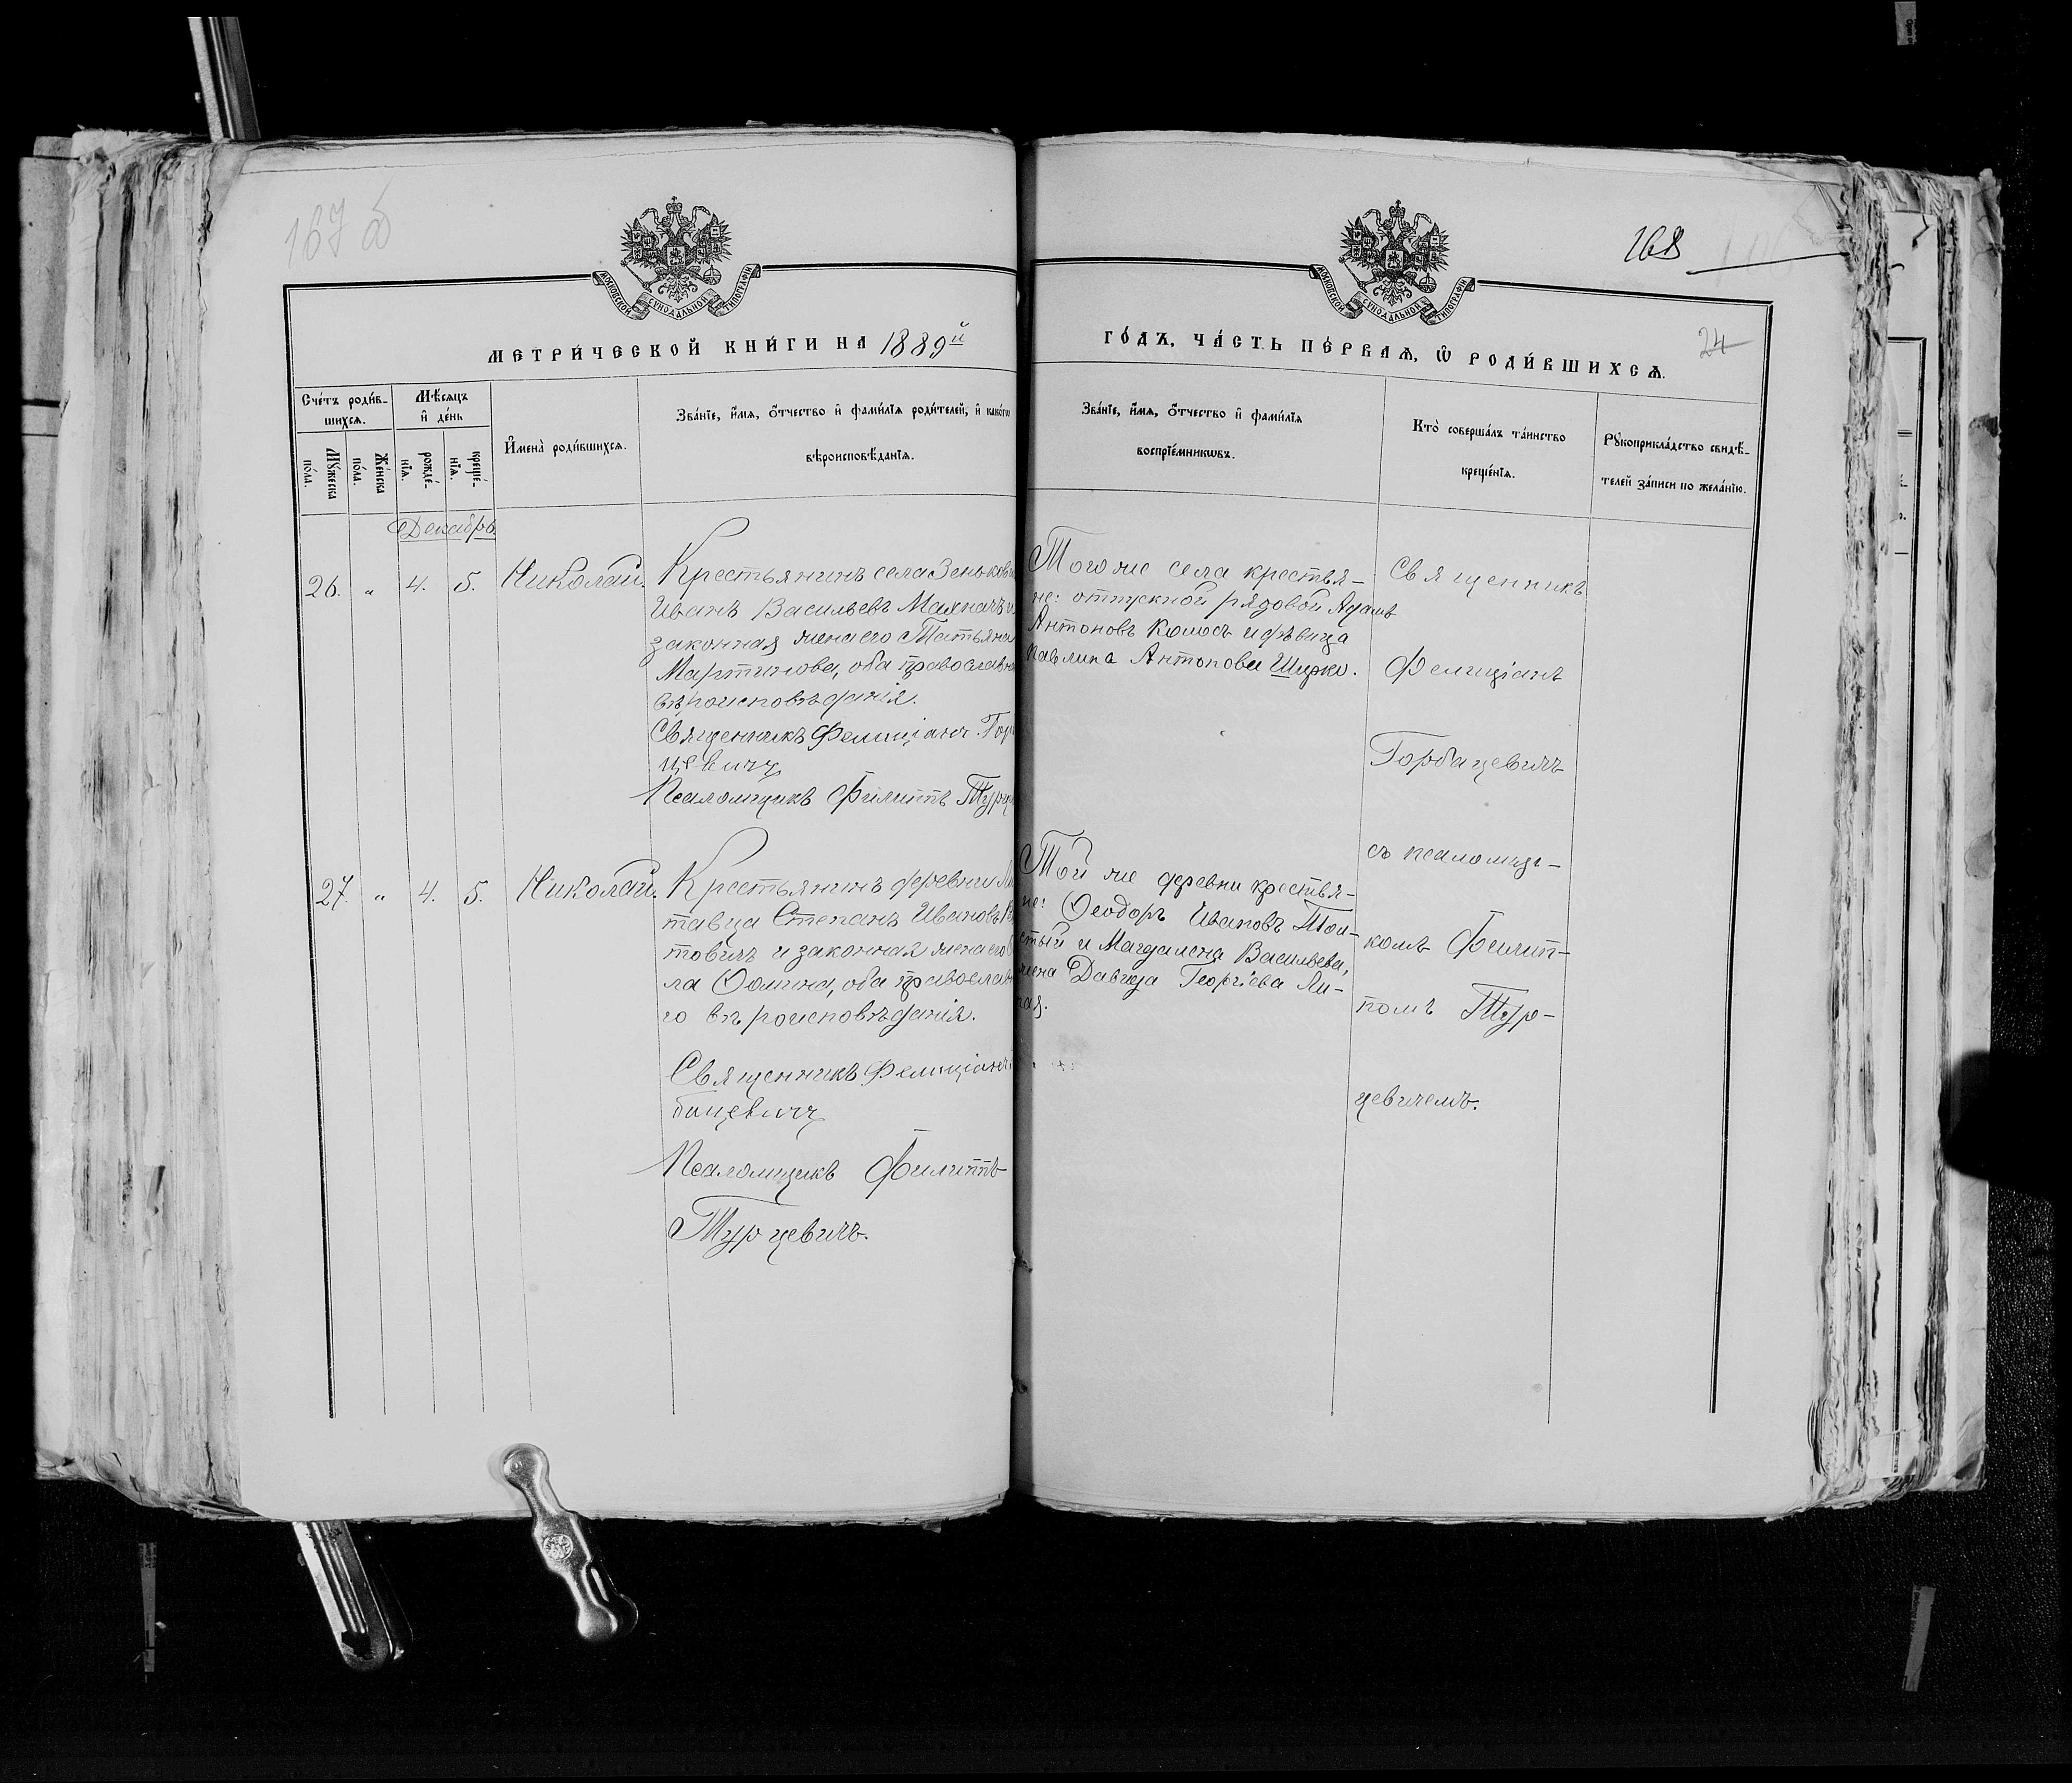 167 б
МОСКОВСКОЙ СѴНОДАЛЬНОЙ ТИПОГРАФІИ
МЕТРИ́ЧЕСКОЙ КНИ́ГИ НА 1889й
Сче́тъ роди́в-
шихсѧ.
Мѣ́сѧцъ
и҆ де́нь
Мꙋ́жеска
по́ла.
Же́нска
по́ла.
рожде́-
нїѧ.
креще́-
нїѧ.
И҆мена̀ роди́вшихсѧ.
Зва́нїе, и҆́мѧ, ѻ҆́тчество и҆ фами́лїѧ роди́телей, и҆ како́гѡ
вѣроисповѣ́данїѧ.
Декабрь
26. „ 4. 5. Николай. Крестьянинъ села Зеньков
Иванъ Васильевъ Махначъ и
законная жена его Татьяна
Мартинова, оба православн
вѣроисповѣданія.
Священникъ Фелиціанъ Гор
цевичъ
Псаломщикъ Филиппъ Турц
27. „ 4. 5. Николай. Крестьянинъ деревни
тавца Степанъ Ивановъ
товичъ и законная жена его
ла Ѳомина, оба православн
го вѣроисповѣданія.
Священникъ Фелиціанъ
бацевичъ
Псаломщикъ Филиппъ
Турцевичъ.
168
МОСКОВСКОЙ СѴНОДАЛЬНОЙ ТИПОГРАФІИ
24
ГО́ДЪ, ЧА́СТЬ ПЕ́РВАѦ, Ѡ҆ РОДИ́ВШИХСѦ.
Зва́нїе, и҆́мѧ, ѻ҆́тчество и҆ фами́лїѧ
воспрїе́мникѡвъ.
Кто̀ соверша́лъ та́инство
креще́нїѧ.
Рꙋкоприкла́дство свидѣ́-
телей за́писи по жела́нїю.
Того же села крестья-
не: отпускной рядовой Адамъ
Антоновъ Колосъ и дѣвица
Павлина Антонова Ширко.
Той же деревни крестья-
не: Ѳеодоръ Ивановъ Тол-
стый и Магдалена Васильева,
жена Давида Георгіева Ли-
Священникъ
Фелиціанъ
Горбацевичъ
съ псаломщи-
комъ Филип-
помъ Тур-
цевичемъ.